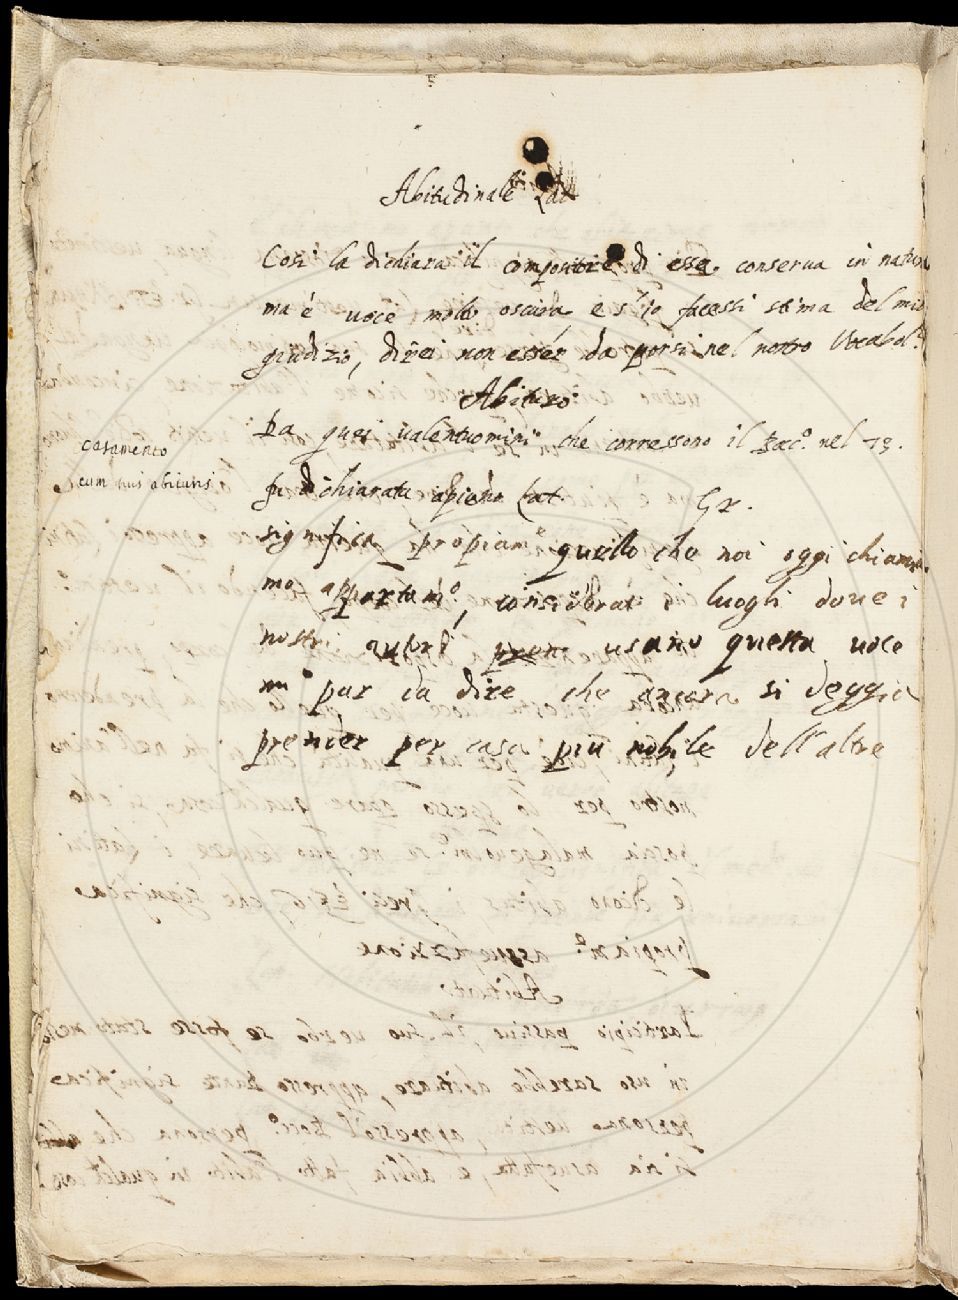 Abitudinale Lat
Così la dichiara il compositore di essa. conserua in natura
ma è uoce molto oscura e s'io facessi stima del mio
giudizio, direi non esser da porsi nel nostro Vocabol.º
Abituro
Da quei ualentuomini che corressono il Bocc.º nel 73.
casamento
cum suis abituris
fu dichiarata apieno Lat. Gr.
significa propiam.e quello che noi oggi chiamia
mo appartam.º, considerati i luoghi doue i
nostri autori usano questa uoce
mi par da dire che ancora si deggia
prender per casa più nobile dell'altre